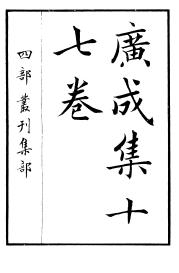 廣成集十
七卷
四部叢刊集部